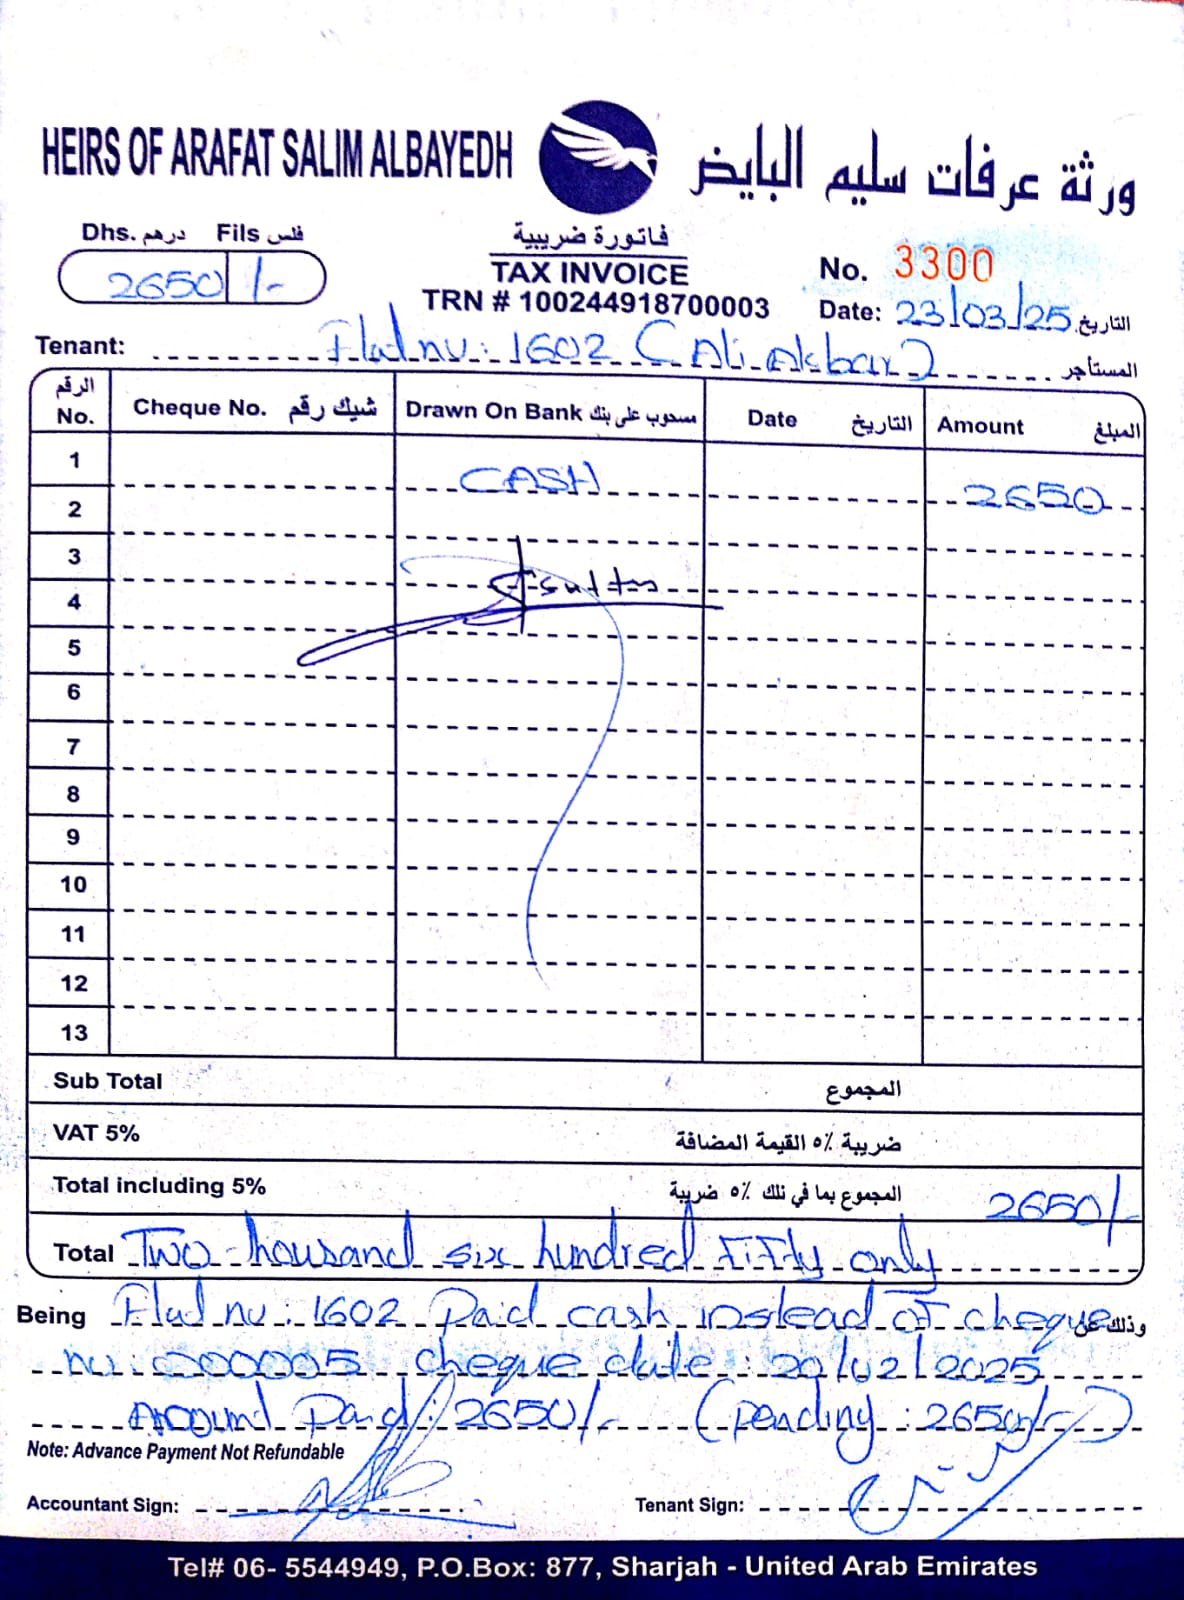 HEIRS OF ARAFAT SALIM ALBAYEDH ورثة عرفات سليم البايض
Dhs. درهم Fils فلس
2650 /-
فاتورة ضريبية
TAX INVOICE
TRN # 100244918700003
No. 3300
Date: 23/03/25 التاريخ
Tenant: Flat no: 1602 (Ali Akbar) المستأجر
الرقم No. Cheque No. شيك رقم Drawn On Bank مسحوب على بنك Date التاريخ Amount المبلغ
1 CASH 2650
2
3
4
5
6
7
8
9
10
11
12
13
Sub Total المجموع
VAT 5% ضريبة ٥٪ القيمة المضافة
Total including 5% المجموع بما في ذلك ٥٪ ضريبة 2650/-
Total Two thousand six hundred fifty only
Being Flat no: 1602 Paid cash instead of cheque وذلك عن
no: 000005 cheque date: 20/02/2025
Amount Paid: 2650/- (pending: 2650/-)
Note: Advance Payment Not Refundable
Accountant Sign: Tenant Sign:
Tel# 06- 5544949, P.O.Box: 877, Sharjah - United Arab Emirates